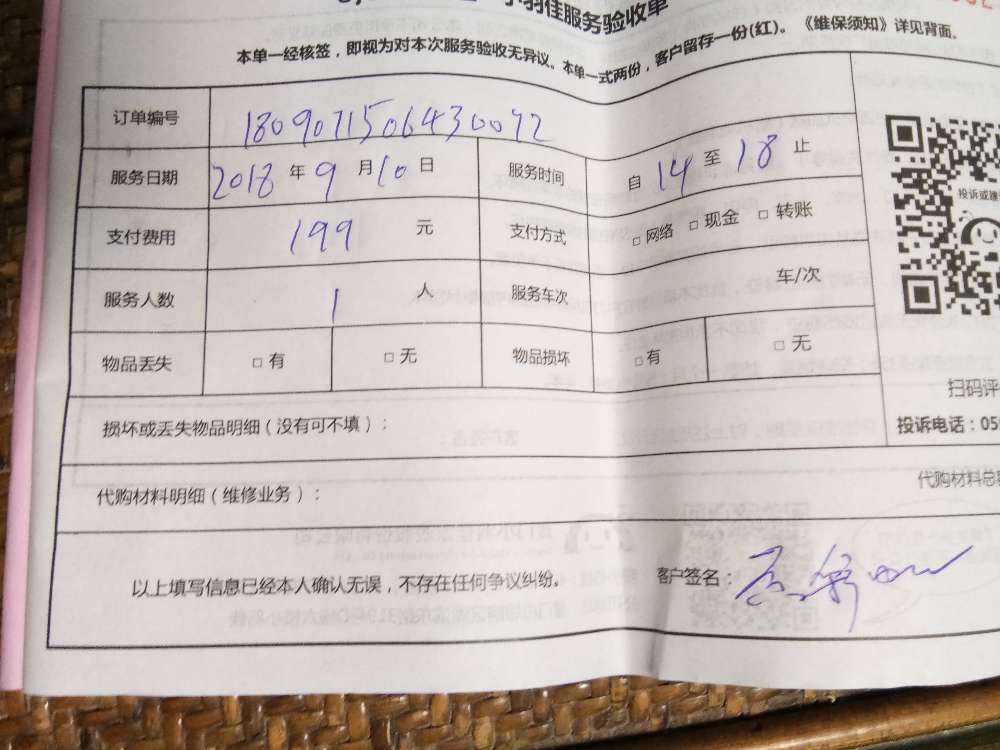 小羽佳服务验收单
本单一经核签，即视为对本次服务验收无异议。本单一式两份，客户留存一份(红)。《维保须知》详见背面。
订单编号 1809071506430092
服务日期 2018 年 9 月 10 日 服务时间 自 14 至 18 止
支付费用 199 元 支付方式 □ 网络 □ 现金 □ 转账
服务人数 1 人 服务车次 车/次
物品丢失 □ 有 □ 无 物品损坏 □ 有 □ 无
投诉或建
扫码评
投诉电话：05
损坏或丢失物品明细（没有可不填）：
代购材料明细（维修业务）： 代购材料总
以上填写信息已经本人确认无误，不存在任何争议纠纷。 客户签名：